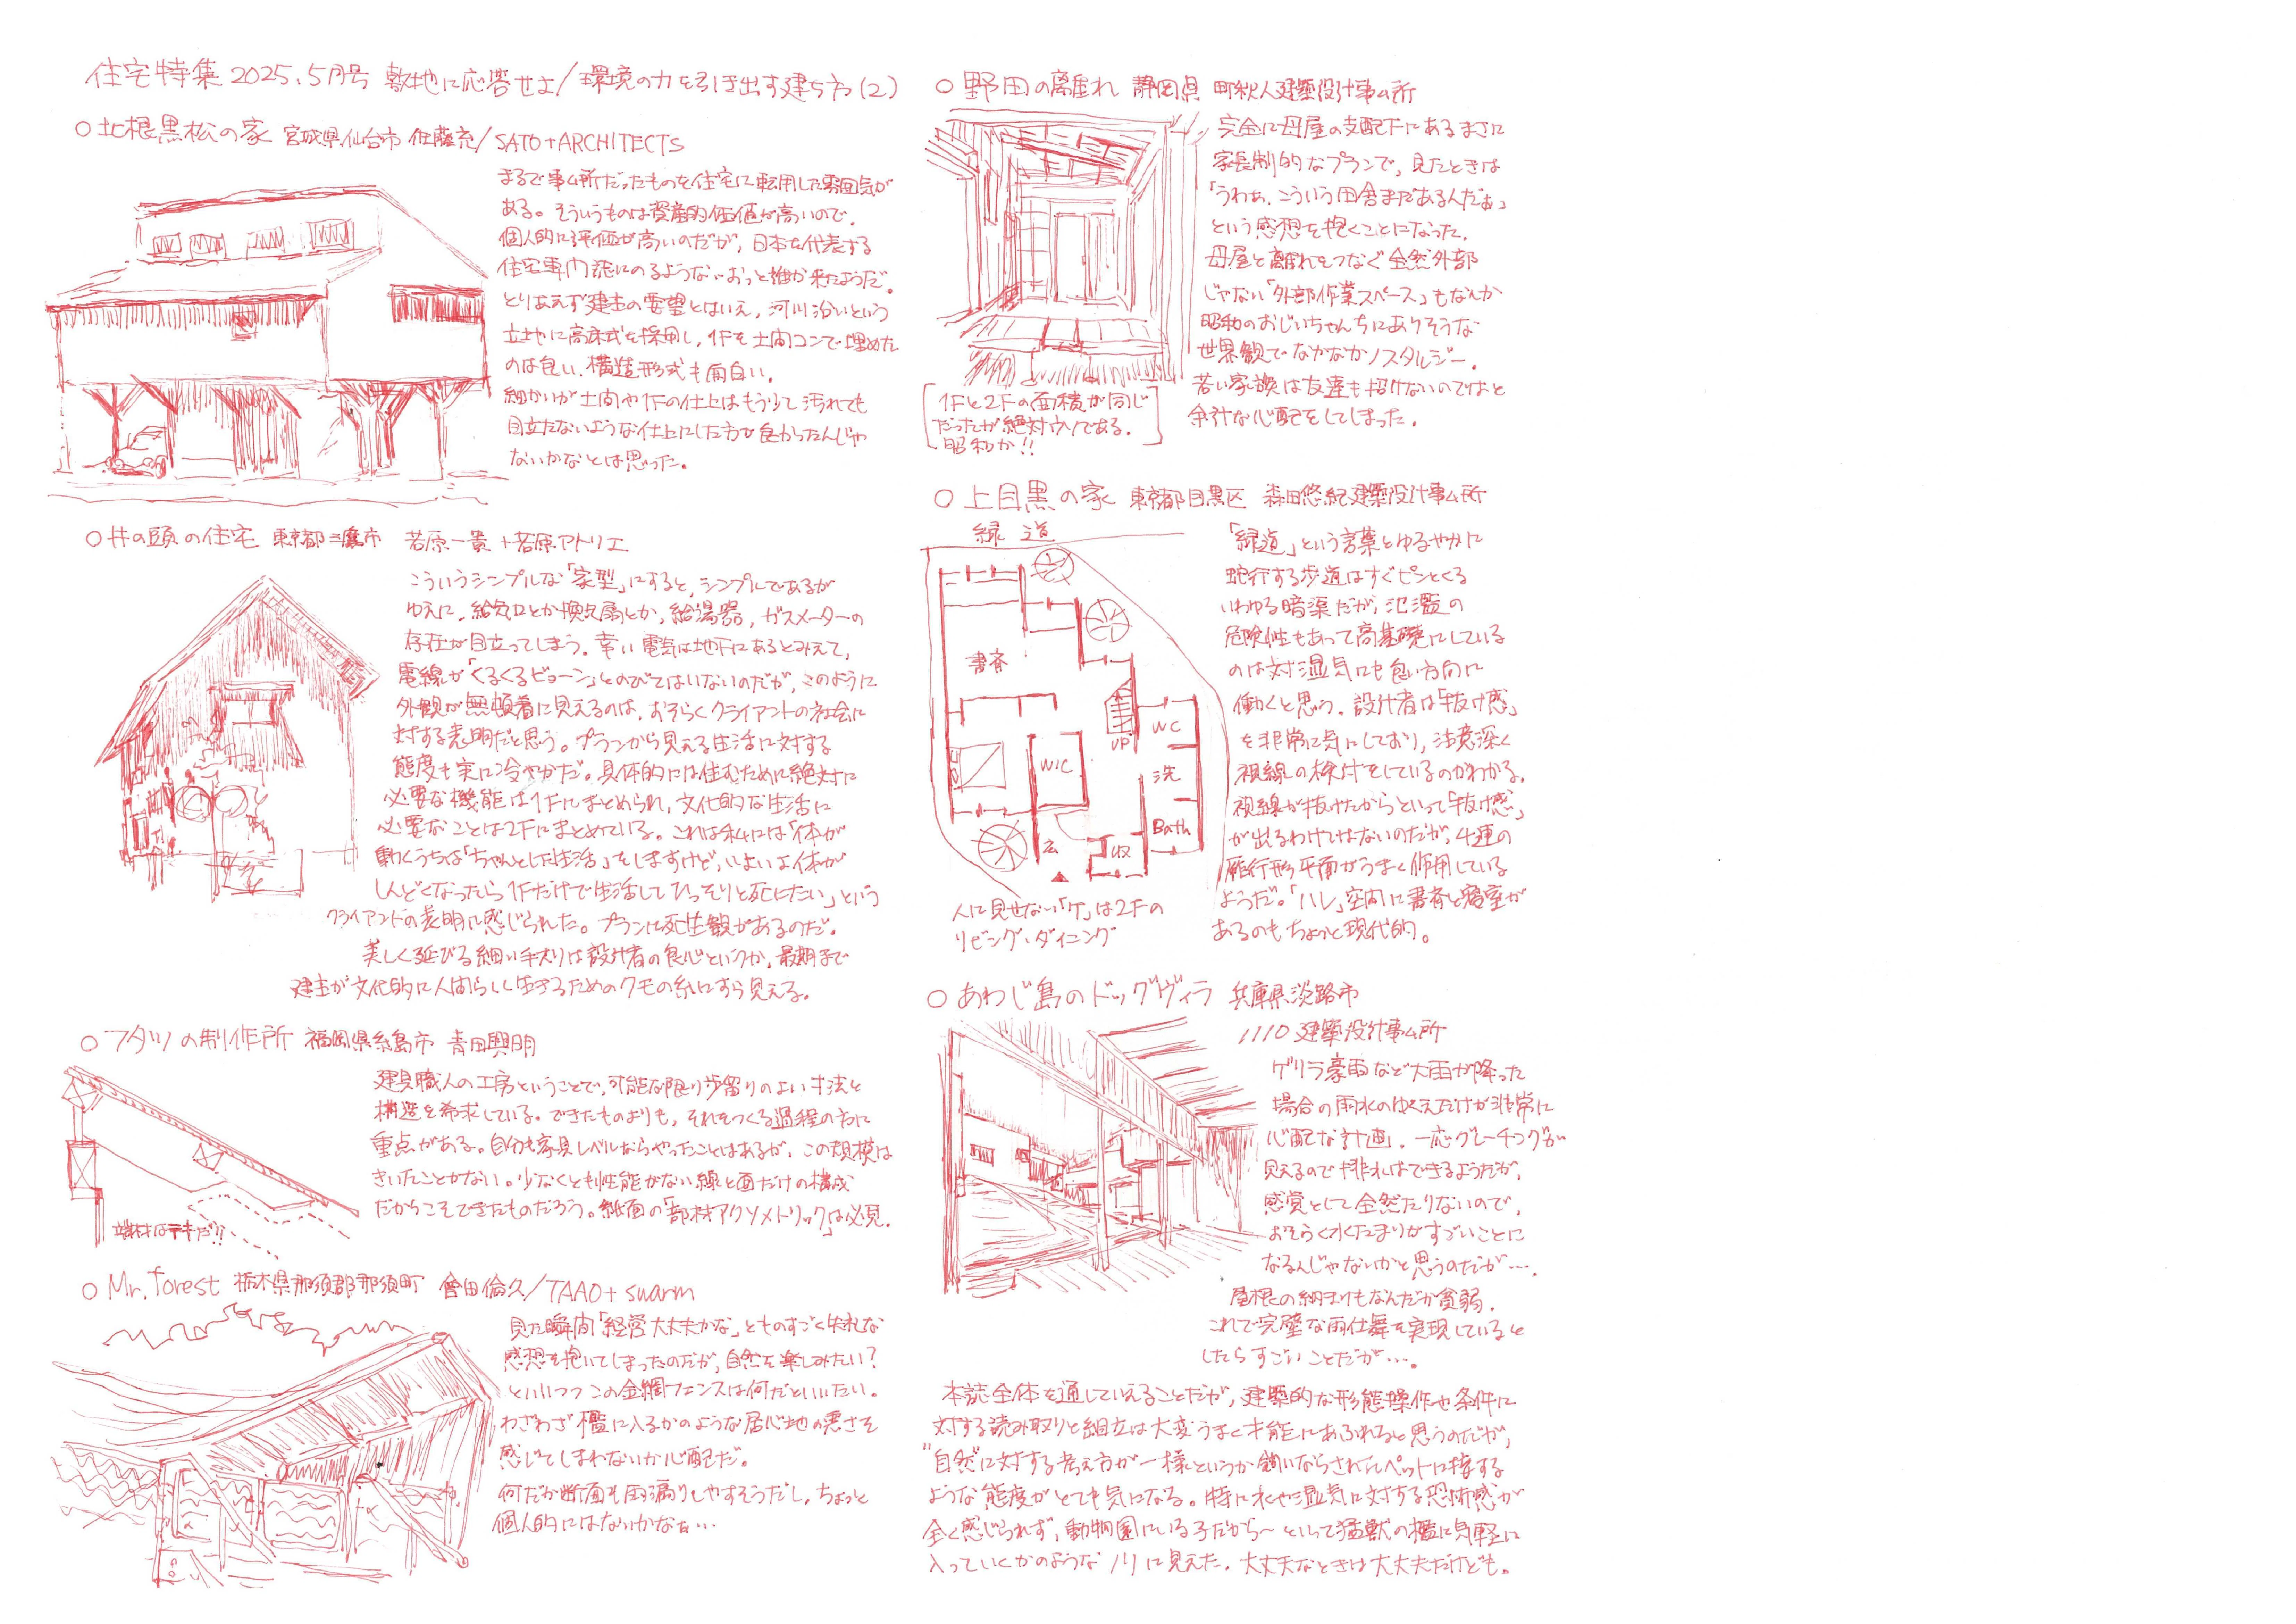 住宅特集 2025.5月号 敷地に応答せよ/環境の力を引き出す建ち方(2)
○北根黒松の家 宮城県仙台市 佐藤充/SATO+ARCHITECTS
まるで事ム所だったものを住宅に転用した雰囲気が
ある。そういうものは資産的価値が高いので、
個人的に評価が高いのだが、日本を代表する
住宅専門誌にのるような…おっと誰か来たようだ。
とりあえず建主の要望とはいえ、河川沿いという
立地に高床式を採用し、1Fを土間コンで埋めた
のは良い。構造形式も面白い。
細かいが土間や1Fの仕上はもう少し汚れても
目立たないような仕上にした方が良かったんじゃ
ないかなとは思った。
○井の頭の住宅 東京都三鷹市 若原一貴+若原アトリエ
こういうシンプルな「家型」にすると、シンプルであるが
ゆえに、給気口とか換気扇とか、給湯器、ガスメーターの
存在が目立ってしまう。幸い電気は地下にあるとみえて、
電線が「くるくるビョーン」とのびてはいないのだが、このように
外観が無頓着に見えるのは、おそらくクライアントの社会に
対する表明だと思う。プランから見える生活に対する
態度も実に冷ややかだ。具体的には住むために絶対に
必要な機能は1Fにまとめられ、文化的な生活に
必要なことは2Fにまとめている。これは私には「体が
動くうちは「ちゃんとした生活」をしますけど、いよいよ体が
しんどくなったら1Fだけで生活してひっそりと死にたい」という
クライアントの表明に感じられた。プランに死生観があるのだ。
美しく延びる細い手スリは設計者の良心というか、最期まで
建主が文化的に人間らしく生きるためのクモの糸にすら見える。
○フタツの制作所 福岡県糸島市 青田興明
建具職人の工房ということで、可能な限り歩留りのよい寸法と
構造を希求している。できたものよりも、それをつくる過程の方に
重点がある。自分も家具レベルならやったことはあるが、この規模は
きいたことがない。少なくとも性能がない線と面だけの構成
だからこそできたものだろう。紙面の「部材アクソメトリック」は必見。
端材はテキだ!!
○Mr. forest 栃木県那須郡那須町 會田倫久/TAAO+swarm
見た瞬間「経営大丈夫かな」とものすごく失礼な
感想を抱いてしまったのだが、自然を楽しみたい?
といいつつこの金網フェンスは何だといいたい。
わざわざ檻に入るかのような居心地の悪さを
感じてしまわないか心配だ。
何だか断面も雨漏りしやすそうだし、ちょっと
個人的にはないかなぁ…
○野田の離れ 静岡県 町秋人建築設計事ム所
完全に母屋の支配下にあるまさに
家長制的なプランで、見たときは
「うわぁ、こういう田舎まだあるんだぁ」
という感想を抱くことになった。
母屋と離れをつなぐ全然外部
じゃない「外部作業スペース」もなんか
昭和のおじいちゃんちにありそうな
世界観でなかなかノスタルジー。
若い家族は友達も招けないのではと
余計な心配をしてしまった。
1Fと2Fの面積が同じ
だったが絶対ウソである。
昭和か!!
○上目黒の家 東京都目黒区 森田悠紀建築設計事ム所
緑 道
書斎
WIC
UP
WC
洗
Bath
収
玄
人に見せない「ケ」は2Fの
リビング・ダイニング
「緑道」という言葉とゆるやかに
蛇行する歩道はすぐピンとくる
いわゆる暗渠だが、氾濫の
危険性もあって高基礎にしている
のは対湿気にも良い方向に
働くと思う。設計者は「抜け感」
を非常に気にしており、注意深く
視線の検討をしているのがわかる。
視線が抜けたからといって「抜け感」
が出るわけではないのだが、4連の
雁行形平面がうまく作用している
ようだ。「ハレ」空間に書斎と寝室が
あるのもちょっと現代的。
○あわじ島のドッグヴィラ 兵庫県淡路市
1110建築設計事ム所
ゲリラ豪雨など大雨が降った
場合の雨水のゆくえだけが非常に
心配な計画。一応グレーチングが
見えるので排水はできるようだが、
感覚として全然たりないので、
おそらく水たまりがすごいことに
なるんじゃないかと思うのだが…。
屋根の納まりもなんだか貧弱。
これで完璧な雨仕舞を実現していると
したらすごいことだが…。
本誌全体を通していえることだが、建築的な形態操作や条件に
対する読み取りと組立は大変うまく才能にあふれると思うのだが、
"自然"に対する考え方が一様というか飼いならされたペットに接する
ような態度がとても気になる。特に水や湿気に対する恐怖感が
全く感じられず、動物園にいる子だから〜といって猛獣の檻に気軽に
入っていくかのようなノリに見えた。大丈夫なときは大丈夫だけども。